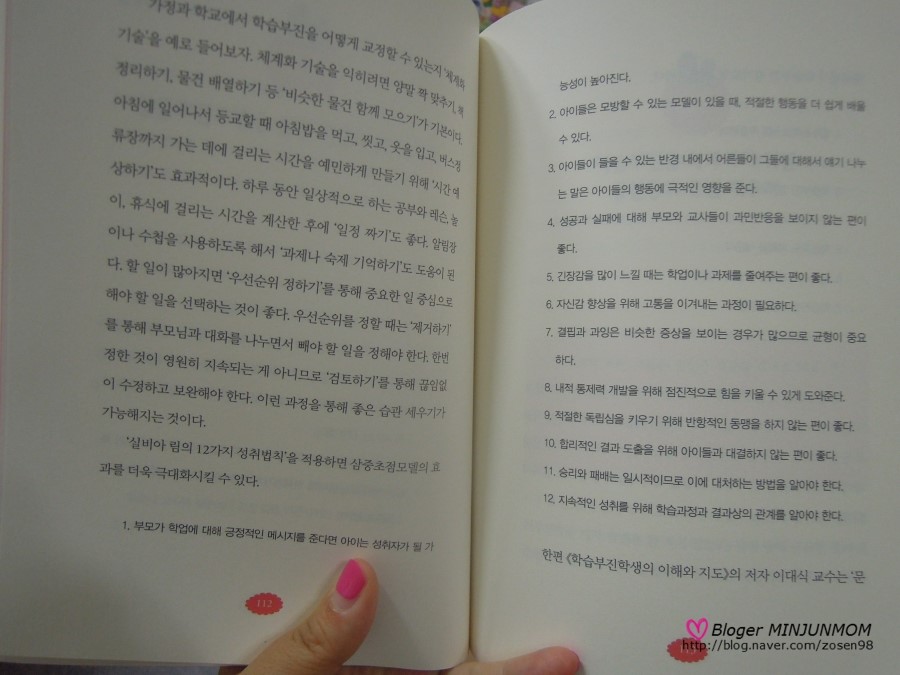 가정과 학교에서 학습부진을 어떻게 교정할 수 있는지 '체계화
기술'을 예로 들어보자. 체계화 기술을 익히려면 양말 짝 맞추기, 책
정리하기, 물건 배열하기 등 '비슷한 물건 함께 모으기'가 기본이다.
아침에 일어나서 등교할 때 아침밥을 먹고, 씻고, 옷을 입고, 버스정
류장까지 가는 데에 걸리는 시간을 예민하게 만들기 위해 '시간 예
상하기'도 효과적이다. 하루 동안 일상적으로 하는 공부와 레슨, 놀
이, 휴식에 걸리는 시간을 계산한 후에 '일정 짜기'도 좋다. 알림장
이나 수첩을 사용하도록 해서 '과제나 숙제 기억하기'도 도움이 된
다. 할 일이 많아지면 '우선순위 정하기'를 통해 중요한 일 중심으로
해야 할 일을 선택하는 것이 좋다. 우선순위를 정할 때는 '제거하기'
를 통해 부모님과 대화를 나누면서 빼야 할 일을 정해야 한다. 한번
정한 것이 영원히 지속되는 게 아니므로 '검토하기'를 통해 끊임없
이 수정하고 보완해야 한다. 이런 과정을 통해 좋은 습관 세우기가
가능해지는 것이다.
'실비아 림의 12가지 성취법칙'을 적용하면 삼중초점모델의 효
과를 더욱 극대화시킬 수 있다.
1. 부모가 학업에 대해 긍정적인 메시지를 준다면 아이는 성취자가 될 가
112
능성이 높아진다.
2. 아이들은 모방할 수 있는 모델이 있을 때, 적절한 행동을 더 쉽게 배울
수 있다.
3. 아이들이 들을 수 있는 반경 내에서 어른들이 그들에 대해서 얘기 나누
는 말은 아이들의 행동에 극적인 영향을 준다.
4. 성공과 실패에 대해 부모와 교사들이 과민반응을 보이지 않는 편이
좋다.
5. 긴장감을 많이 느낄 때는 학업이나 과제를 줄여주는 편이 좋다.
6. 자신감 향상을 위해 고통을 이겨내는 과정이 필요하다.
7. 결핍과 과잉은 비슷한 증상을 보이는 경우가 많으므로 균형이 중요
하다.
8. 내적 통제력 개발을 위해 점진적으로 힘을 키울 수 있게 도와준다.
9. 적절한 독립심을 키우기 위해 반항적인 동맹을 하지 않는 편이 좋다.
10. 합리적인 결과 도출을 위해 아이들과 대결하지 않는 편이 좋다.
11. 승리와 패배는 일시적이므로 이에 대처하는 방법을 알아야 한다.
12. 지속적인 성취를 위해 학습과정과 결과상의 관계를 알아야 한다.
한편 《학습부진학생의 이해와 지도》의 저자 이대식 교수는 '문
Bloger MINJUNMOM
http://blog.naver.com/zosen98